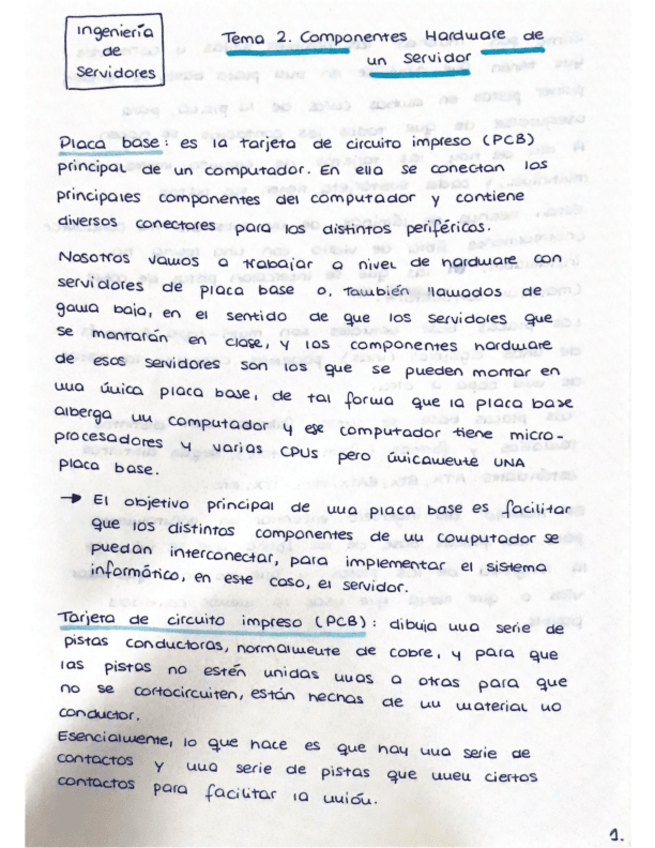 Ingeniería
de
Servidores
Tema 2. Componentes Hardware de
un Servidor
Placa base: es la tarjeta de circuito impreso (PCB)
principal de un computador. En ella se conectan los
principales componentes del computador y contiene
diversos conectores para los distintos periféricos.
Nosotros vamos a trabajar a nivel de hardware con
servidores de placa base o, también llamados de
gama baja, en el sentido de que los servidores que
se montarán en clase, y los componentes hardware
de esos servidores son los que se pueden montar en
una única placa base, de tal forma que la placa base
alberga un computador y ese computador tiene micro-
procesadores y varias CPUs pero únicamente UNA
placa base.
→ El objetivo principal de una placa base es facilitar
que los distintos componentes de un computador se
puedan interconectar, para implementar el sistema
informático, en este caso, el servidor.
Tarjeta de circuito impreso (PCB): dibuja una serie de
pistas conductoras, normalmente de cobre, y para que
las pistas no estén unidas unas a otras para que
no se cortocircuiten, están hechas de un material no
conductor.
Esencialmente, lo que hace es que hay una serie de
contactos y una serie de pistas que unen ciertos
contactos para facilitar la unión.
1.